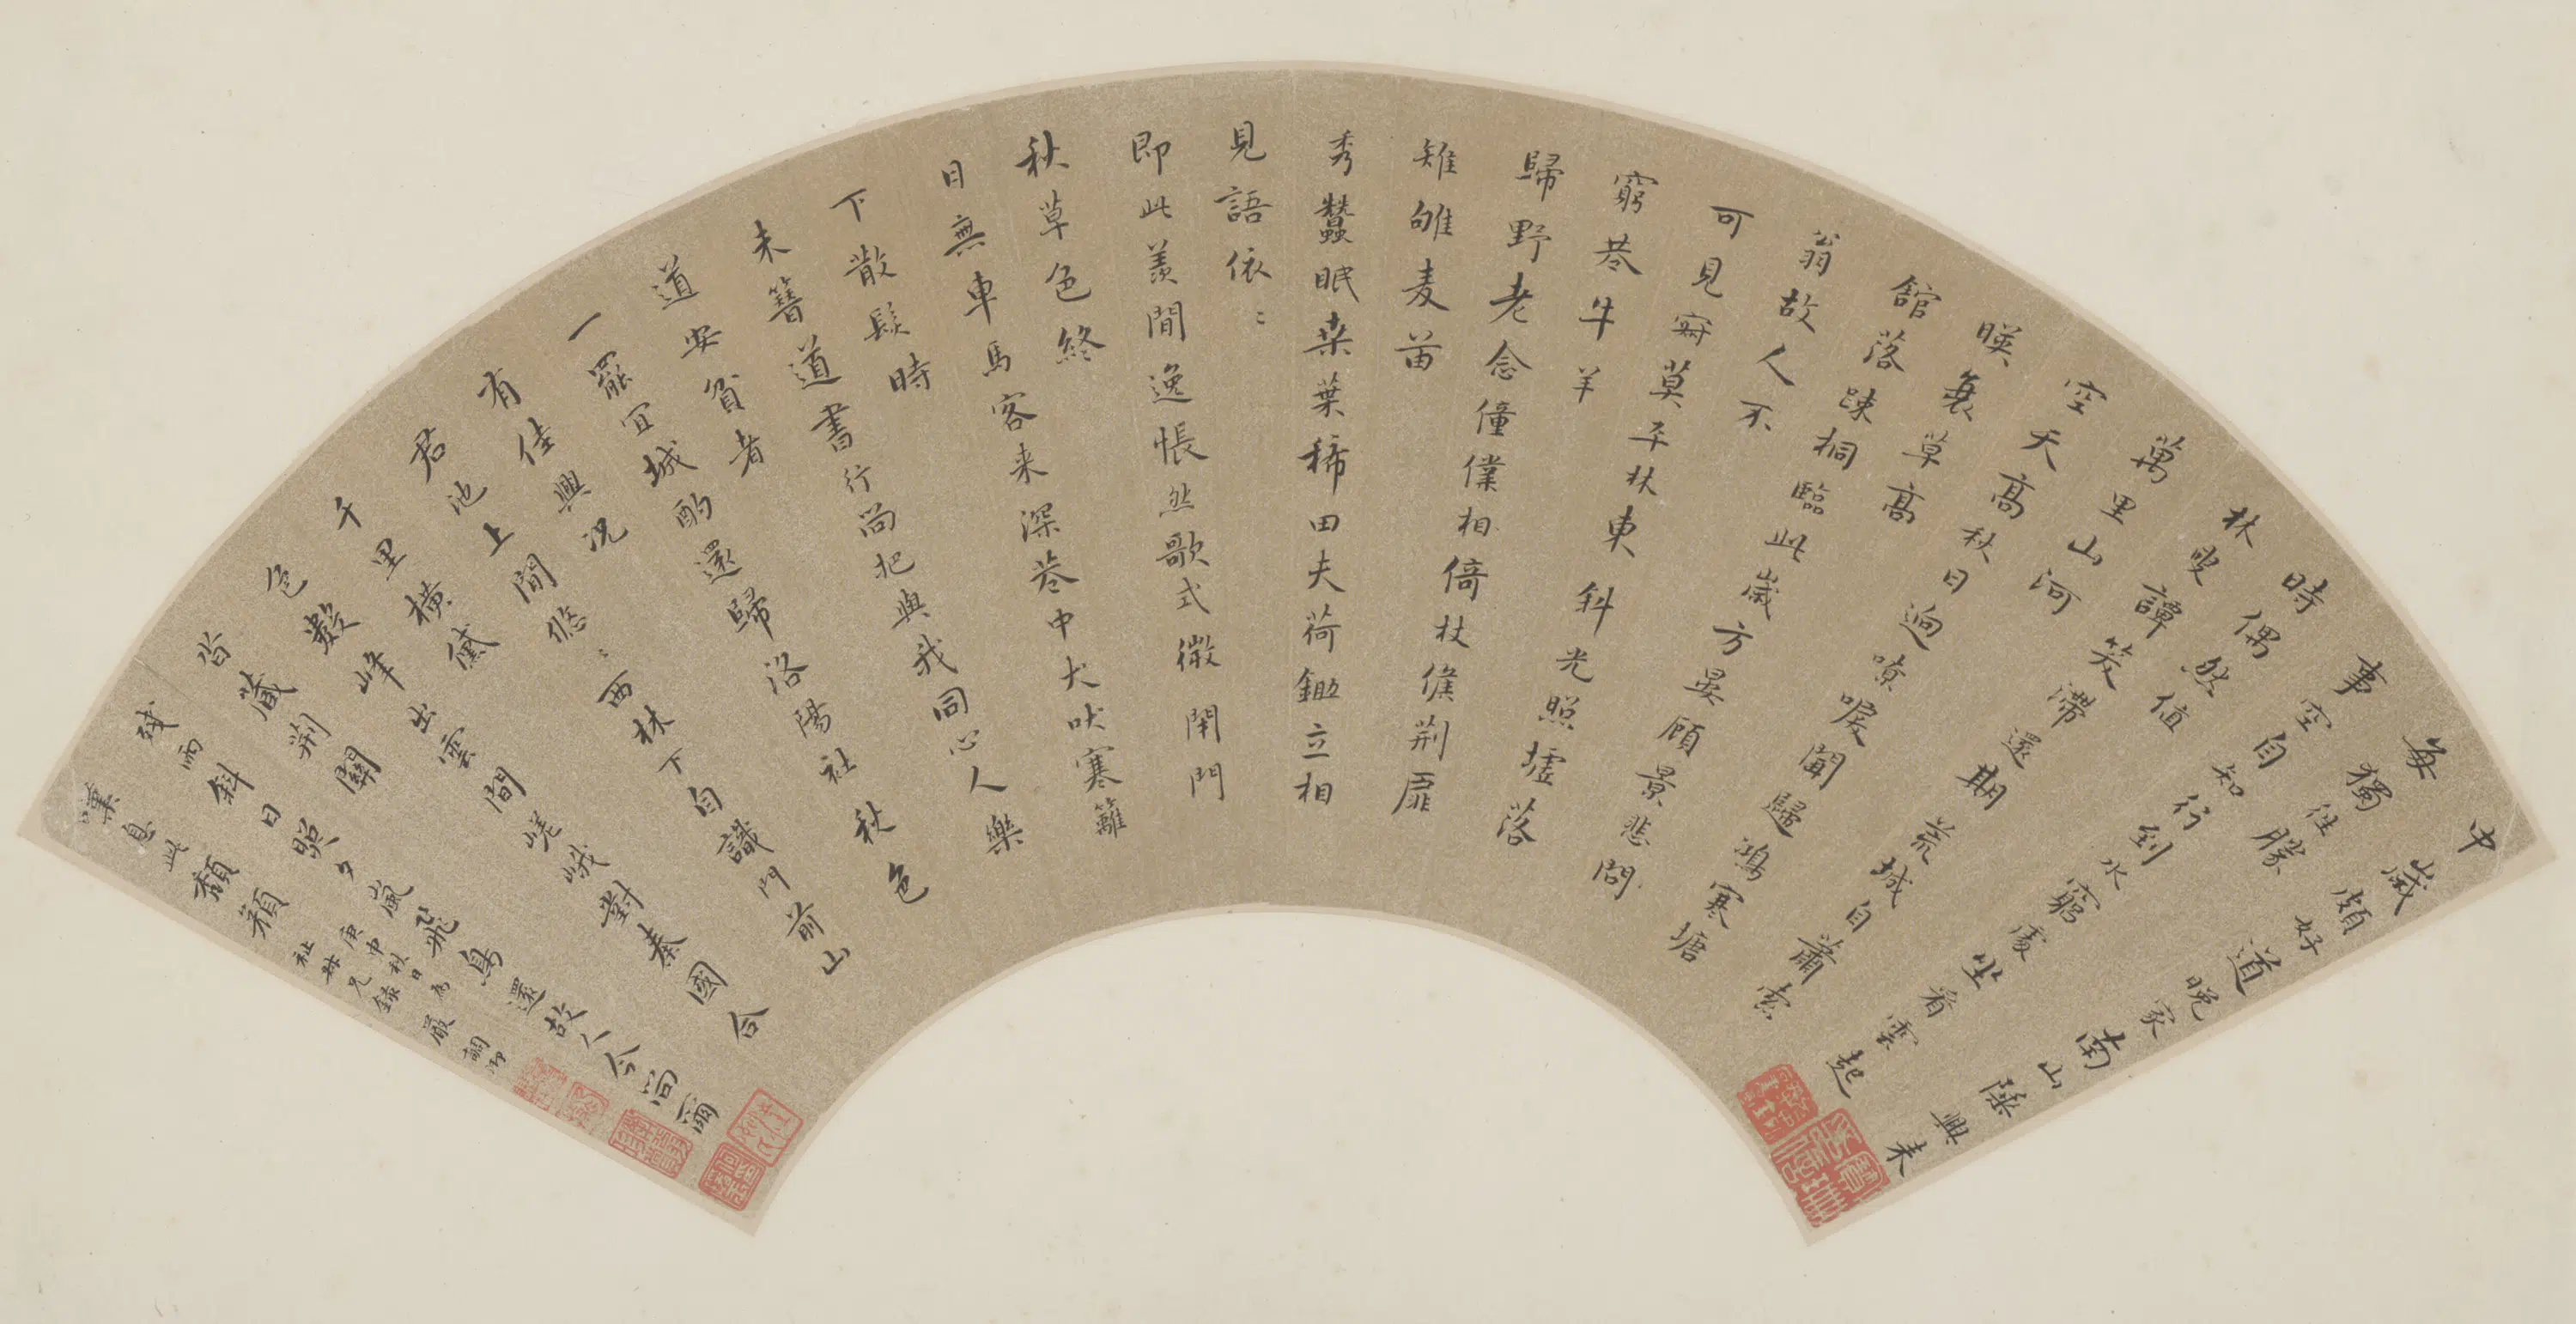 中歲頗好道晚家南山陲興来
每獨往勝
事空自知行到水窮處坐看雲起
時偶然值
林叟譚笑滯還期荒城自蕭索
萬里山河
空天高秋日迥嘹唳聞歸鴻寒塘
暎衰草高
舘落踈桐臨此歲方晏顧景悲問
翁故人不
可見寂莫平林東斜光照墟落
窮巷牛羊
歸野老念僮僕相倚杖候荆扉
雉雊麦苗
秀蠶眠桒葉稀田夫荷鋤立相
見語依〻
即此羨閒逸悵然歌式微閑門
秋草色終
日無車馬客来深巷中犬吠寒籬
下散髮時
未簪道書行尚把與我同心人樂
道安貧者
一罷宜城酌還歸洛陽社秋色
有佳興况
君池上閒悠〻西林下自識門前山
千里橫黛
色數峰出雲間嵯峨對秦國合
沓藏荆關
殘雨斜日照夕嵐飛鳥還故人今尚爾
嘆息此頹顏
庚申秋日為
祉毋兄録
嚴調御